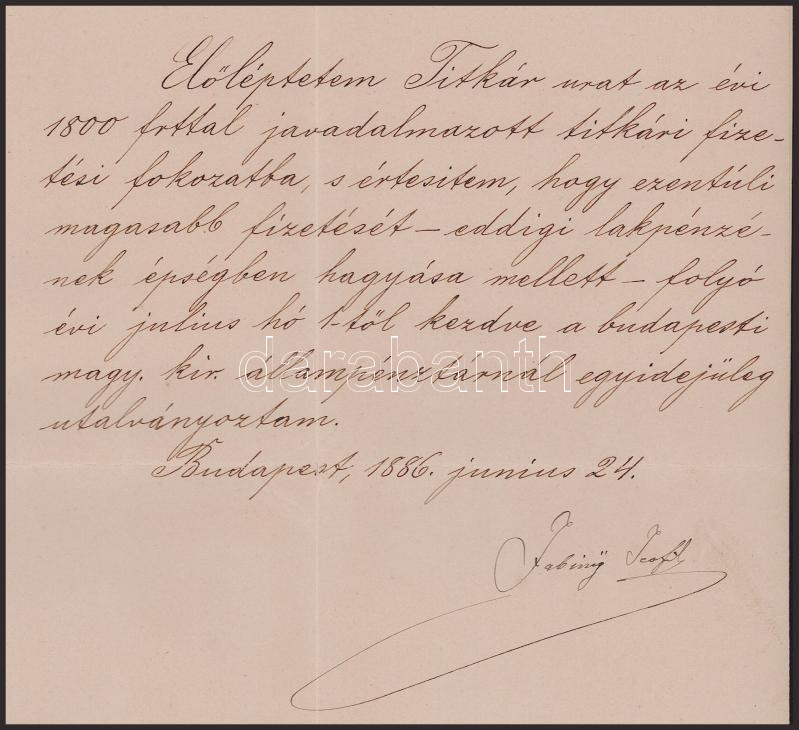 Előléptetem Titkár urat az évi
1800 frttal javadalmazott titkári fize-
tési fokozatba, s értesitem, hogy ezentúli
magasabb fizetését – eddigi lakpénzé-
nek épségben hagyása mellett – folyó
évi julius hó 1-től kezdve a budapesti
magy. kir. állampénztárnál egyidejüleg
utalványoztam.
Budapest, 1886. junius 24.
Fabinÿ Teofil
darabanth